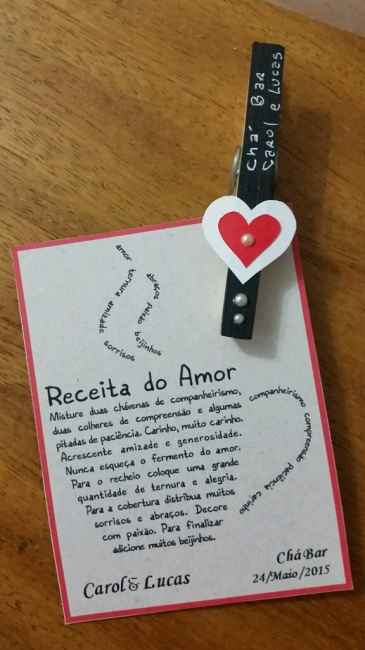 Chá Bar
Carol e Lucas
amor ternura amizade sorrisos
abraços paixão beijinhos
Receita do Amor
Misture duas chávenas de companheirismo,
duas colheres de compreensão e algumas
pitadas de paciência. Carinho, muito carinho.
Acrescente amizade e generosidade.
Nunca esqueça o fermento do amor.
Para o recheio coloque uma grande
quantidade de ternura e alegria.
Para a cobertura distribua muitos
sorrisos e abraços. Decore
com paixão. Para finalizar
adicione muitos beijinhos.
companheirismo compreensão paciência carinho
Carol & Lucas
Chá Bar
24/Maio/2015